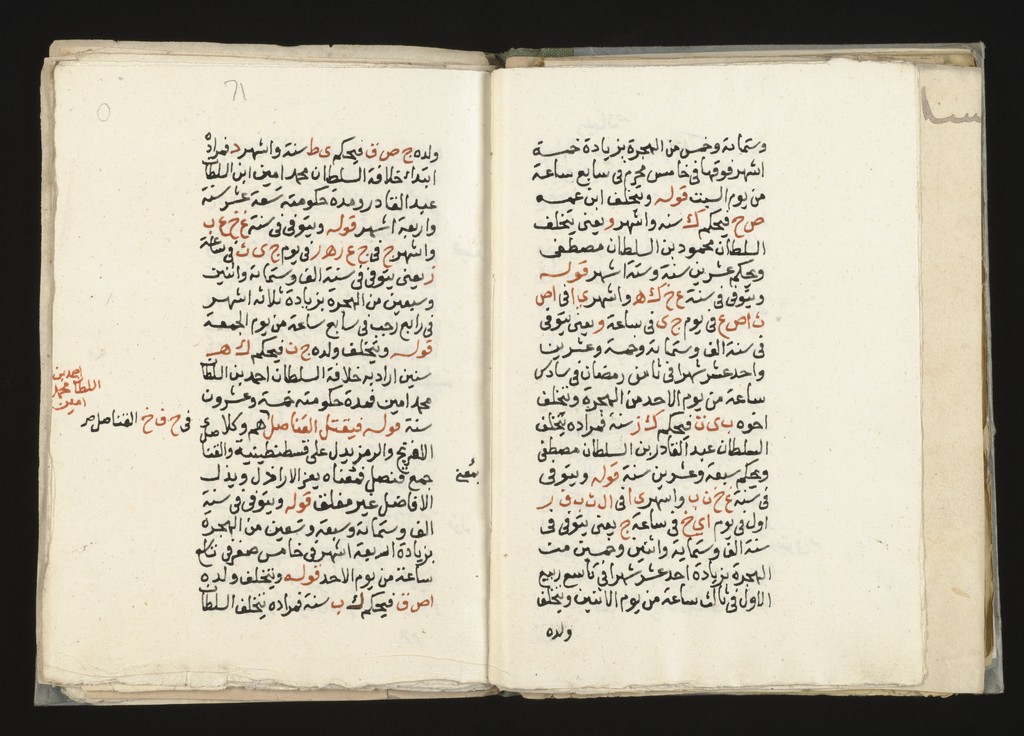 وستمائة وخمس من الهجرة بزيادة خمسة
اشهر فوقها في خامس محرم في سابع ساعة
من يوم السبت قوله ويتخلف ابن عمه
ص ح فيحكم ك سنه واشهر و يعني يتخلف
السلطان محمود بن السلطان مصطفى
ويحكم عشرين سنة وستة اشهر قوله
ويتوفى في سنة غ خ ك ه واشهر ي ا في اص
ث اص ع في يوم ج ي في ساعة و يعني يتوفى
في سنة الف وستماية وخمسة وعشرين
واحد عشر شهرا في ثامن رمضان في سادس
ساعة من يوم الاحد من الهجرة ويتخلف
اخوه ب ى ت فيحكم ك ز سنة فمراده يتخلف
السلطان عبد القادر بن السلطان مصطفى
ويحكم سبعة وعشرين سنة قوله ويتوفى
في سنة غ خ ن ب واشهر ي ا في ال ث ب ف ر
اول في يوم اي خ في ساعة ج يعني يتوفى في
سنة الف وستماية واثنين وخمسين من
الهجرة بزيادة احد عشر شهرا في تاسع ربيع
الاول في ثالث ساعة من يوم الاثنين ويتخلف
ولده
71
ولده ج ص ق فيحكم ى ط سنة واشهر د فمراده
ابتداء خلافة السلطان محمد امين ابن السلطان
عبد القادر ومدة حكومته تسعة عشر سنة
واربعة اشهر قوله ويتوفى في سنة غ خ ع ب
واشهر ج في ج ع ر ه ر في يوم ج ى ث في ساعة
ز يعني يتوفى في سنة الف وستماية واثنين
وسبعين من الهجرة بزيادة ثلاثه اشهر
في رابع رجب في سابع ساعة من يوم الجمعة
قوله ويتخلف ولده ج ن فيحكم ك ه
سنين اراد به خلافة السلطان احمد بن السلطان
محمد امين فمدة حكومته خمسة وعشرون
سنة قوله فيقتل القناصل هم وكلاء
الافرنج والرمز يدل على قسطنطينية والقنا
جمع قنصل فمعناه يعز الاراذل ويذل
الافاضل غير مغلف قوله ويتوفى في سنة
الف وستمائة وسبعة وتسعين من الهجرة
بزيادة اربعة اشهر في خامس صفر في تاسع
ساعة من يوم الاحد قوله ويتخلف ولده
اص ق فيحكم ك ب سنة فمراده يتخلف السلطان
احمد بن
السلطان محمد
امين
في ح ف خ القناصل
يعني